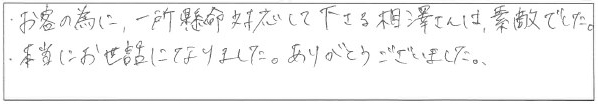 ・お客の為に、一所懸命対応して下さる相澤さんは、素敵でした。
・本当にお世話になりました。ありがとうございました。